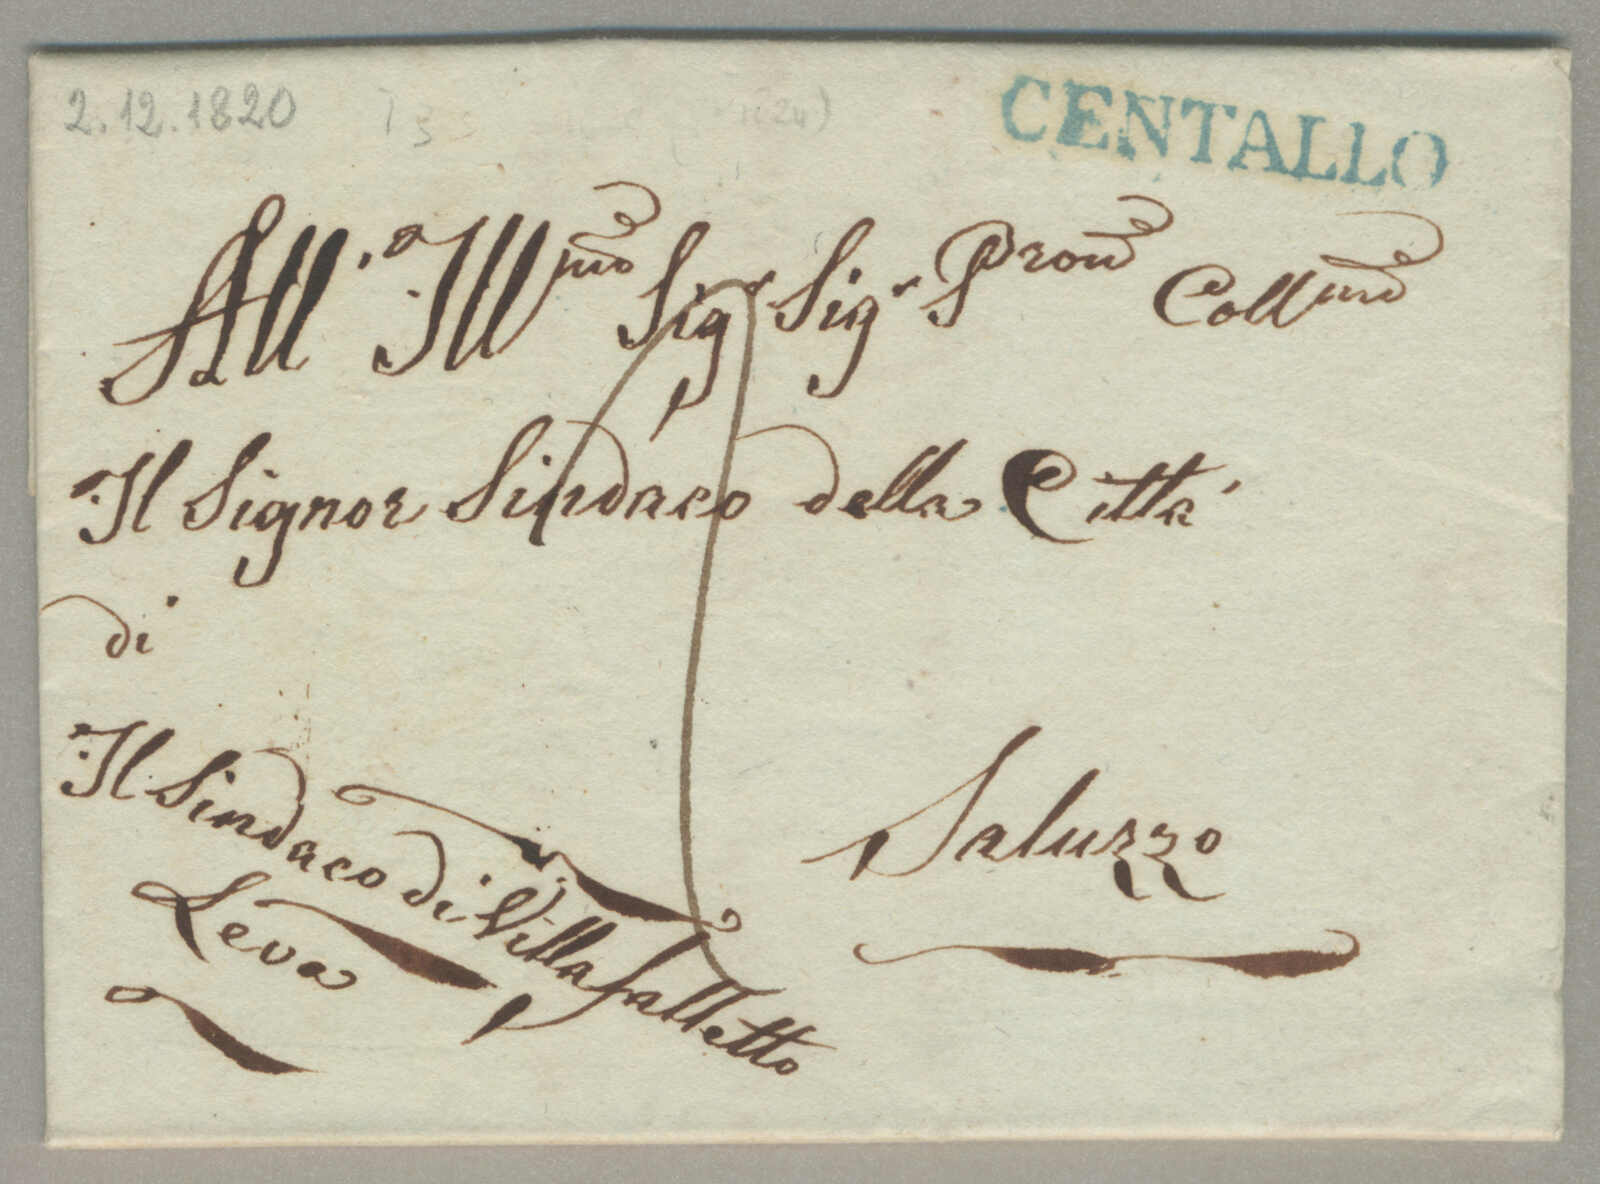 2.12.1820
CENTALLO
All' Ill.mo Sig.r Sig.r P.ron Coll.mo
Il Signor Sindaco della Città
di
Saluzzo
Il Sindaco di Villafalletto
Leva